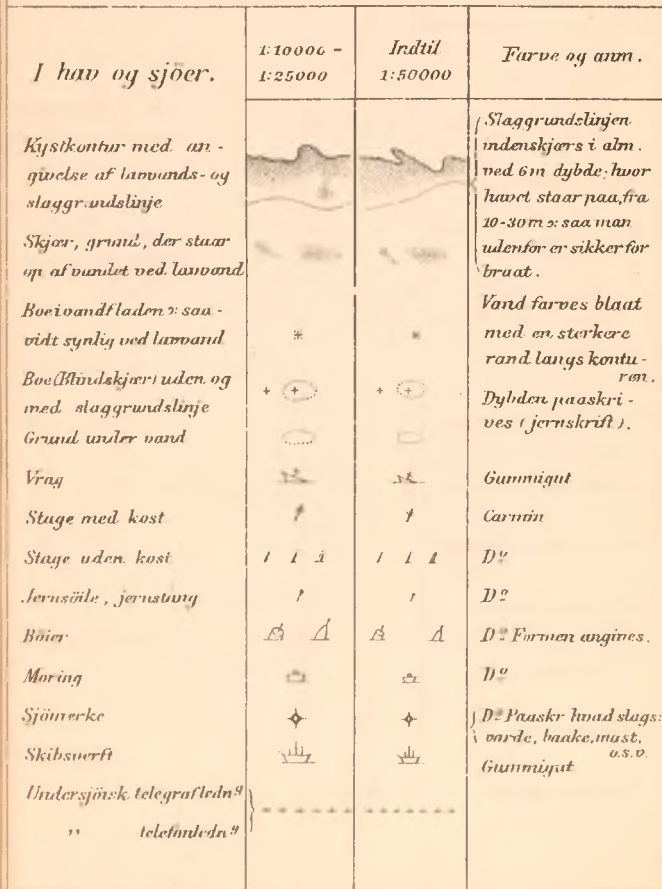 I hav og sjöer.
1:10000 -
1:25000
Indtil
1:50000
Farve og anm.
Kystkontur med an-
givelse af lavvands- og
slaggrundslinje
Slaggrundslinjen
indenskjærs i alm.
ved 6m dybde; hvor
havet staar paa, fra
10-30m ɔ: saa man
udenfor er sikker for
braat.
Skjær, grund, der staar
op af vandet ved lavvand
Boe i vandfladen ɔ: saa-
vidt synlig ved lavvand
Vand farves blaat
med en sterkere
rand langs kontu-
ren.
Boe (Blindskjær) uden og
med slaggrundslinje
Dybden paaskri-
ves (jernskrift).
Grund under vand
Vrag
Gummigut
Stage med kost
Carmin
Stage uden kost
Dº
Jernsöile, jernstang
Dº
Böier
Dº Formen angives.
Moring
Dº
Sjömerke
Dº Paaskr hvad slags:
varde, baake, mast,
o.s.v.
Skibsverft
Gummigut
Undersjöisk telegrafledng
" telefonledng